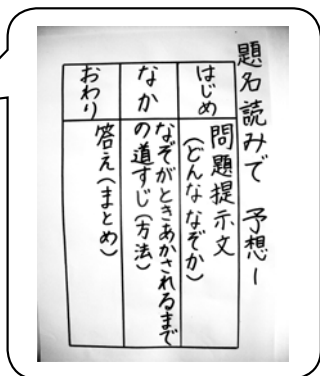 題名読みで 予想ー
はじめ
問題提示文
(どんな なぞか)
なか
なぞがときあかされるまで
の道すじ(方法)
おわり
答え(まとめ)